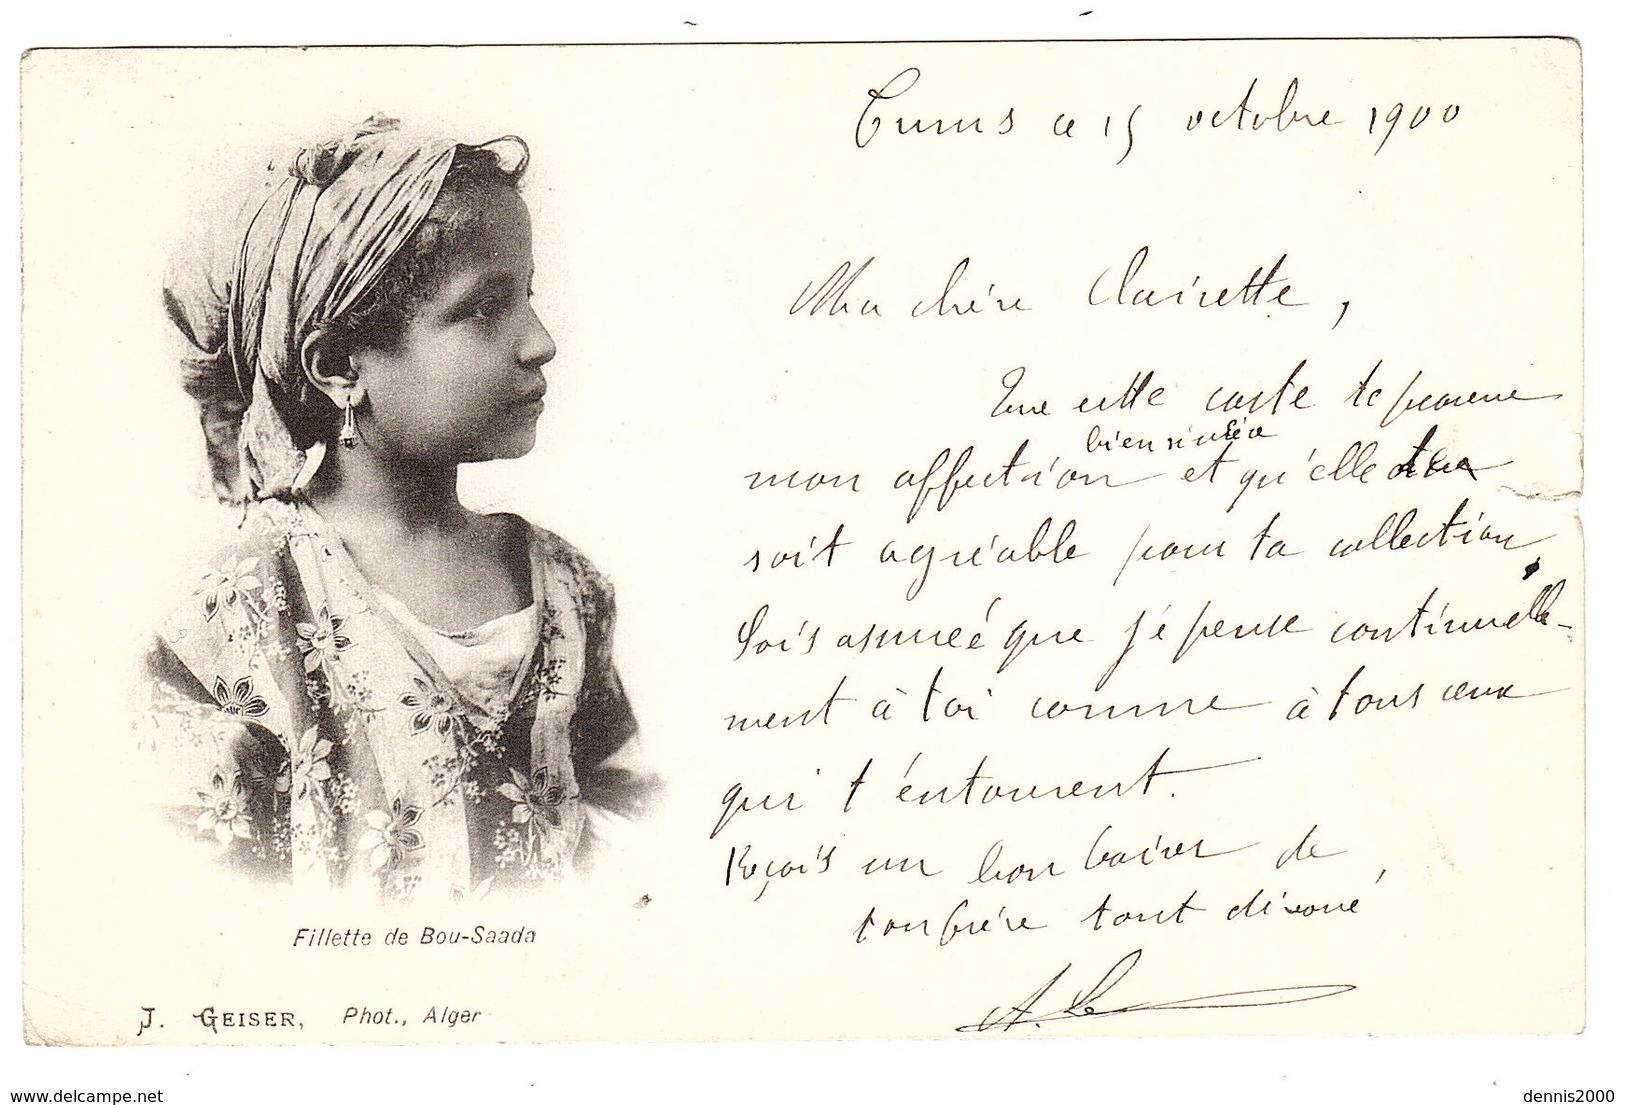 Tunis ce 15 octobre 1900
Ma chère Clairette,
Que cette carte te prouve
bien sincère
mon affection et qu'elle
soit agréable pour ta collection.
Sois assureé que jé pense continuelle-
ment à toi comme à tous ceux
qui t'éntourent.
Reçois un bon baiser de
ton frère tout dévoué,
A. Le
Fillette de Bou-Saada
J. GEISER, Phot., Alger
www.delcampe.net
dennis2000